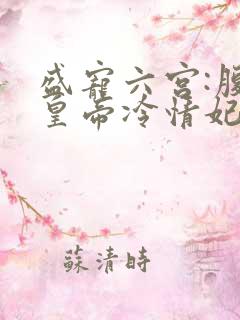 盛宠六宫:腹
皇帝冷情妃
蘇清時